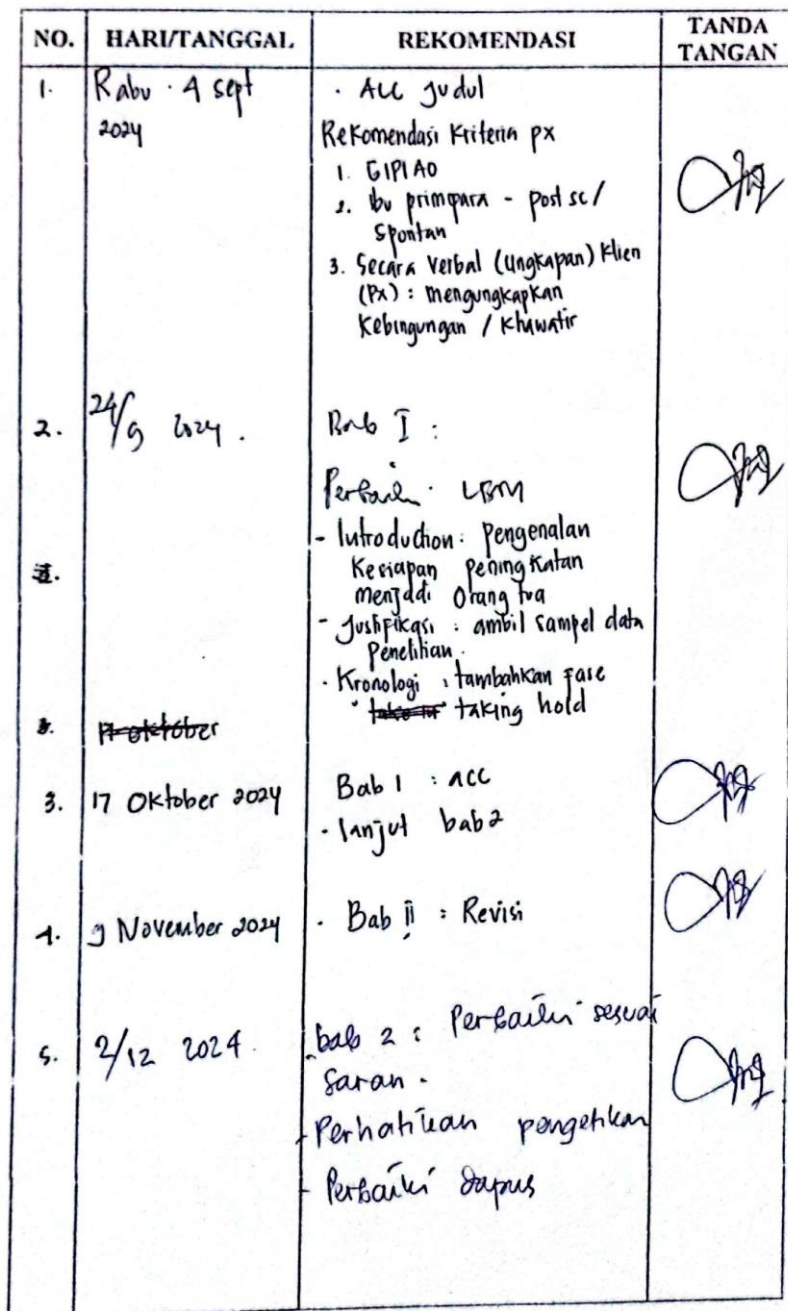 NO. HARI/TANGGAL REKOMENDASI TANDA TANGAN
1. Rabu · 4 sept 2024
· ACC Judul
Rekomendasi Kriteria px
1. G1P1A0
2. Ibu primipara - post sc /
Spontan
3. Secara verbal (ungkapan) Klien
(Px) : mengungkapkan
Kebingungan / Khawatir
2. 24/9 2024.
Bab I :
Perbaiki LBM
- Introduction : Pengenalan
Kesiapan peningkatan
menjadi Orang tua
- Justifikasi : ambil sampel data
Penelitian.
· Kronologi : tambahkan fase
taking hold
17 oktober
3. 17 Oktober 2024
Bab 1 : acc
· lanjut bab 2
4. 9 November 2024 · Bab II : Revisi
5. 2/12 2024.
bab 2 : Perbaiki sesuai
saran.
- Perhatikan pengetikan
- Perbaiki dapus